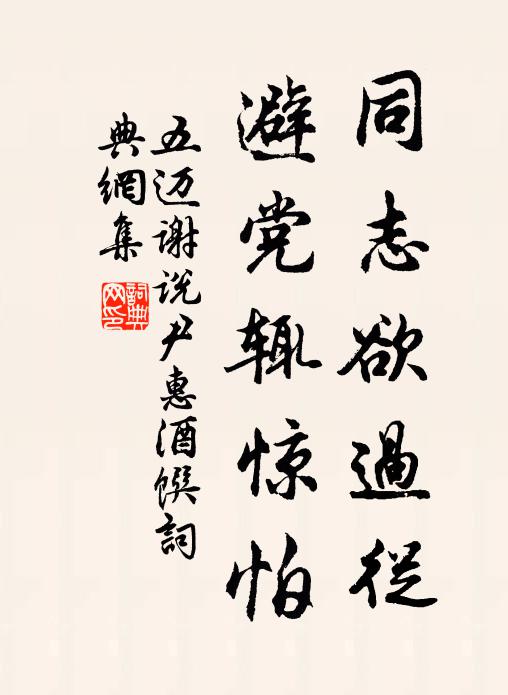 同志欲過從
避党辄惊怕
五迈谢说尹惠酒馔詞
典網集
詞典網印